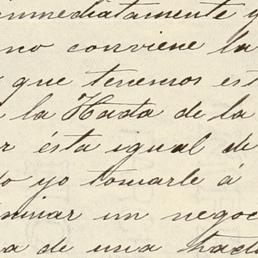 inmediatamente y
no conviene la
que tenemos est
la Hada de la
r ésta igual de
do yo tomarle á
minar un negoc
a de una hac